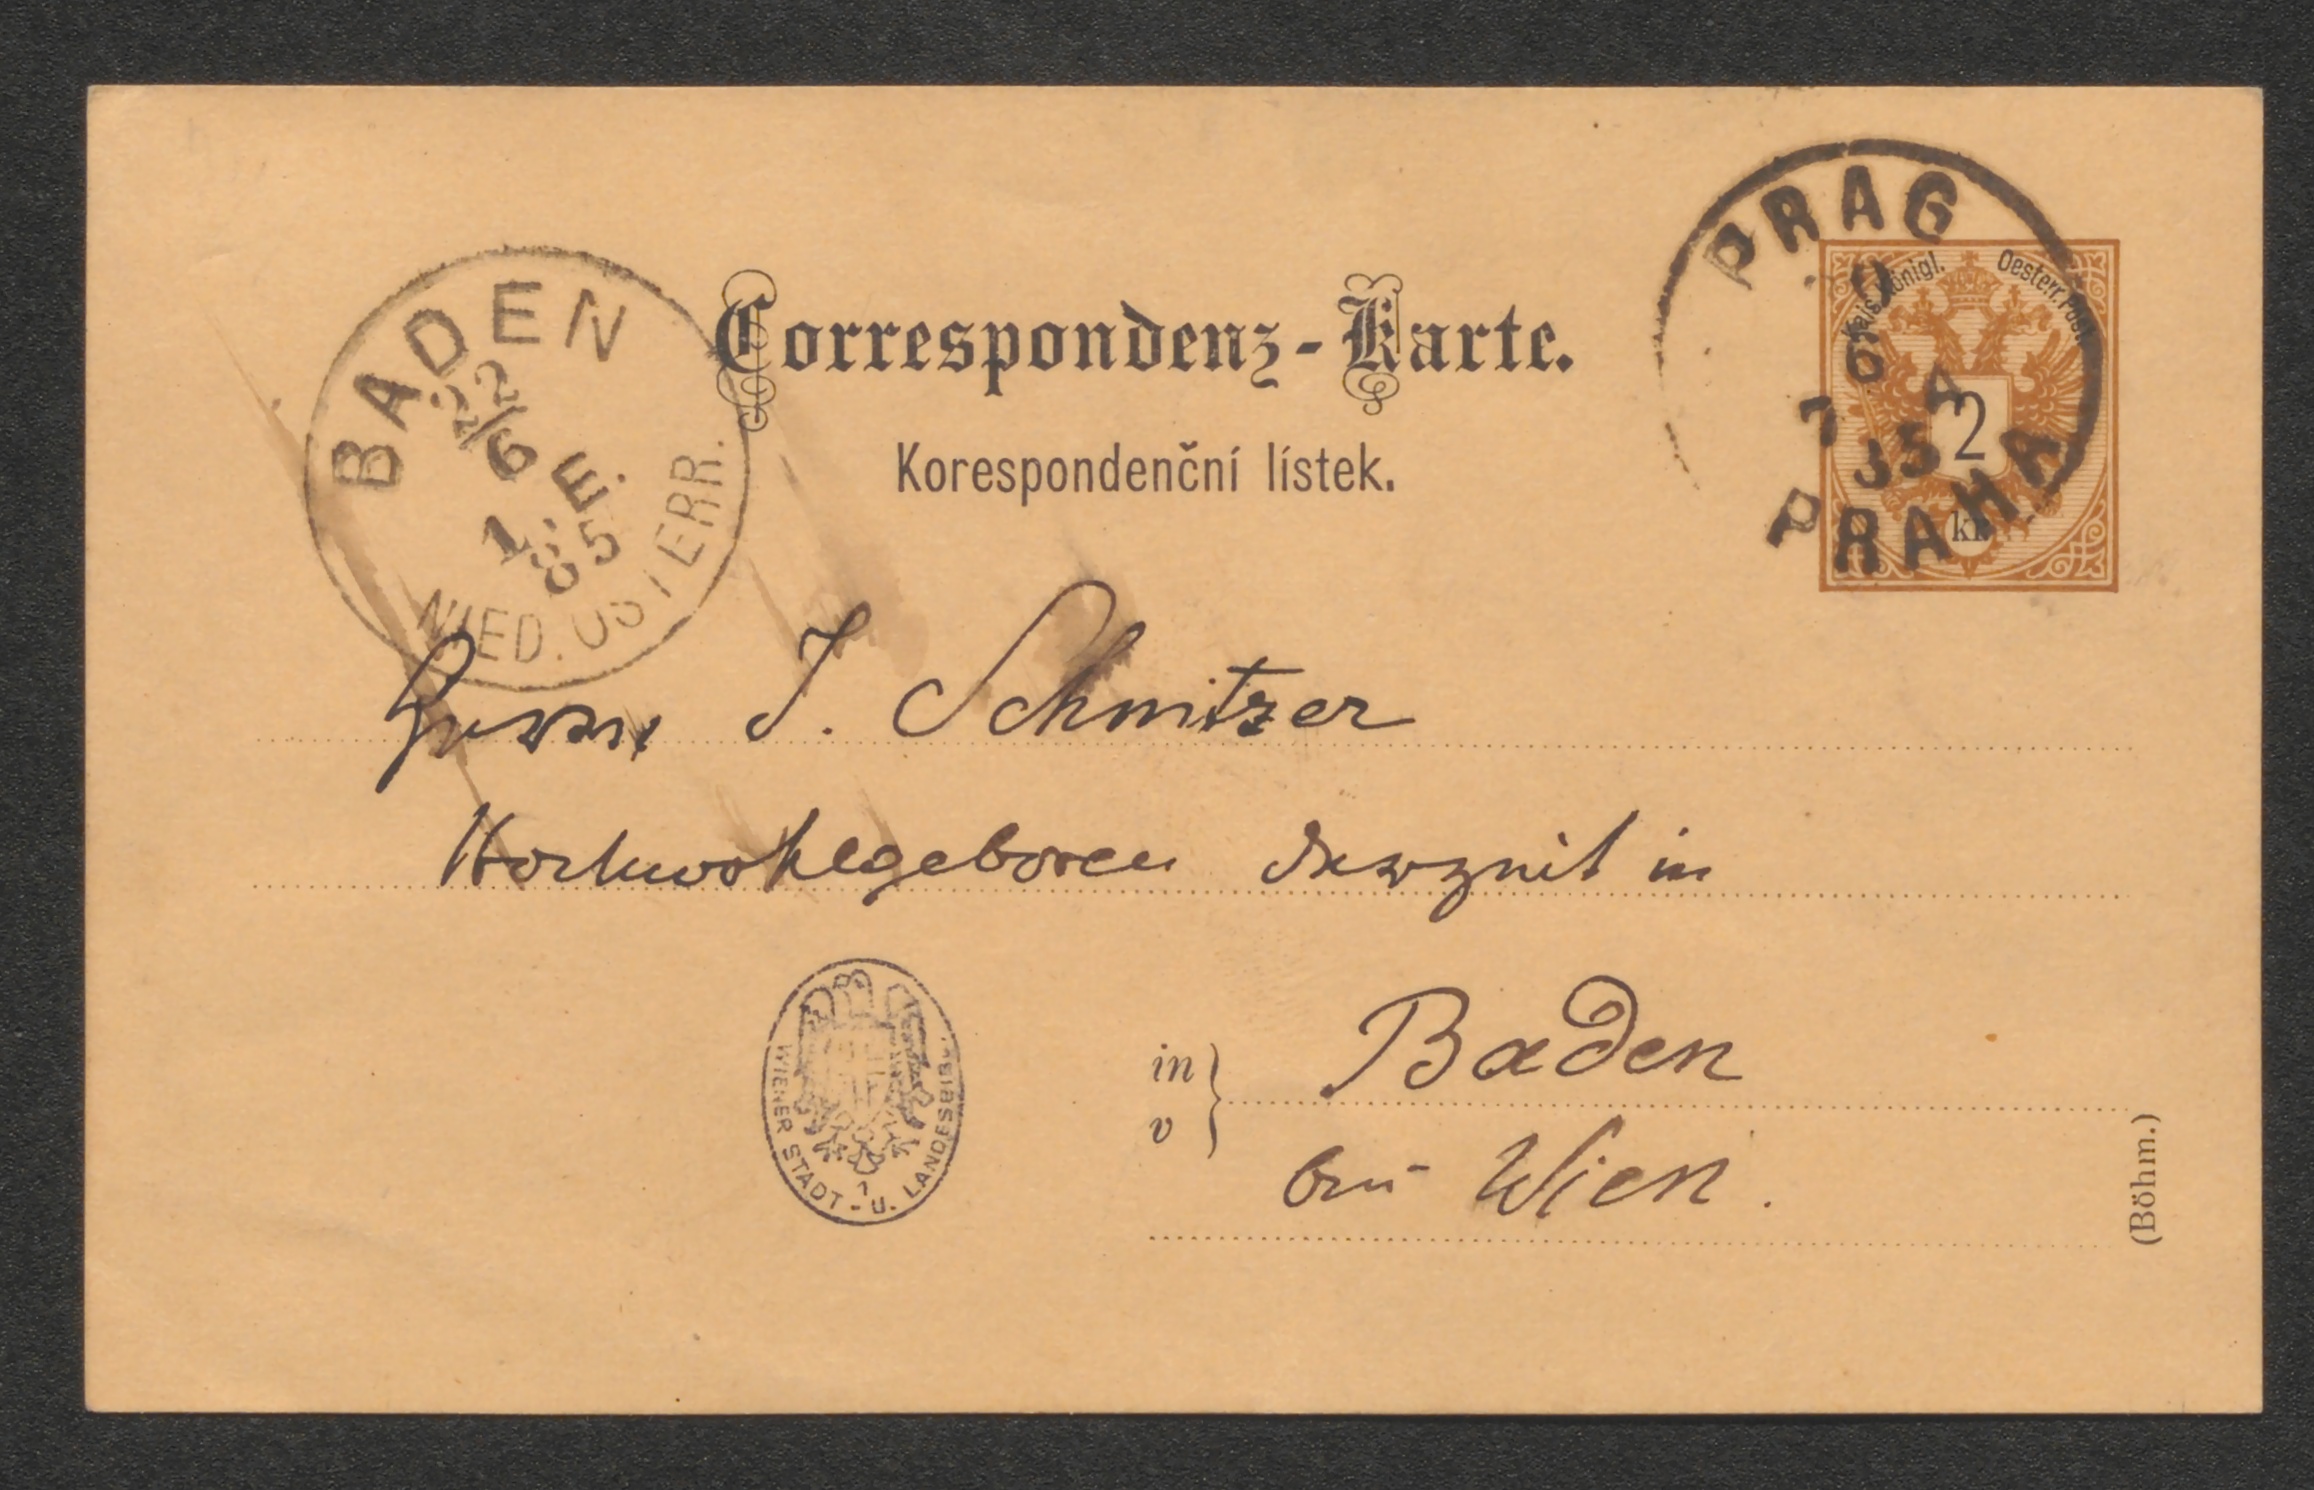 Correspondenz-Karte.
Korespondenční lístek.
BADEN
22/6
1. E.
85
NIED. ÖSTERR.
PRAG
PRAHA
Kais. Königl. Oesterr. Post.
2
kr
Herrn J. Schnitzer
Hochwohlgeboren derzeit in
in
v
Baden
bei Wien.
WIENER STADT - U. LANDESBIBL.
(Böhm.)